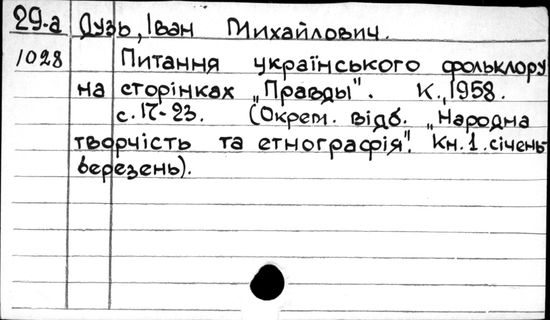 29-а Дузь, Іван Михайлович.
1028 Питання українського фольклору
на сторінках „Правды". К., 1958.
с. 17-23. (Окрем. відб. „Народна
творчість та етнографія". Кн. 1. січень-
березень).